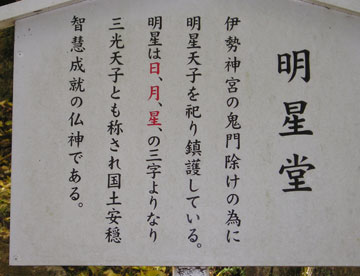 明星堂
伊勢神宮の鬼門除けの為に
明星天子を祀り鎮護している。
明星は日、月、星、の三字よりなり
三光天子とも称され国土安穏
智慧成就の仏神である。